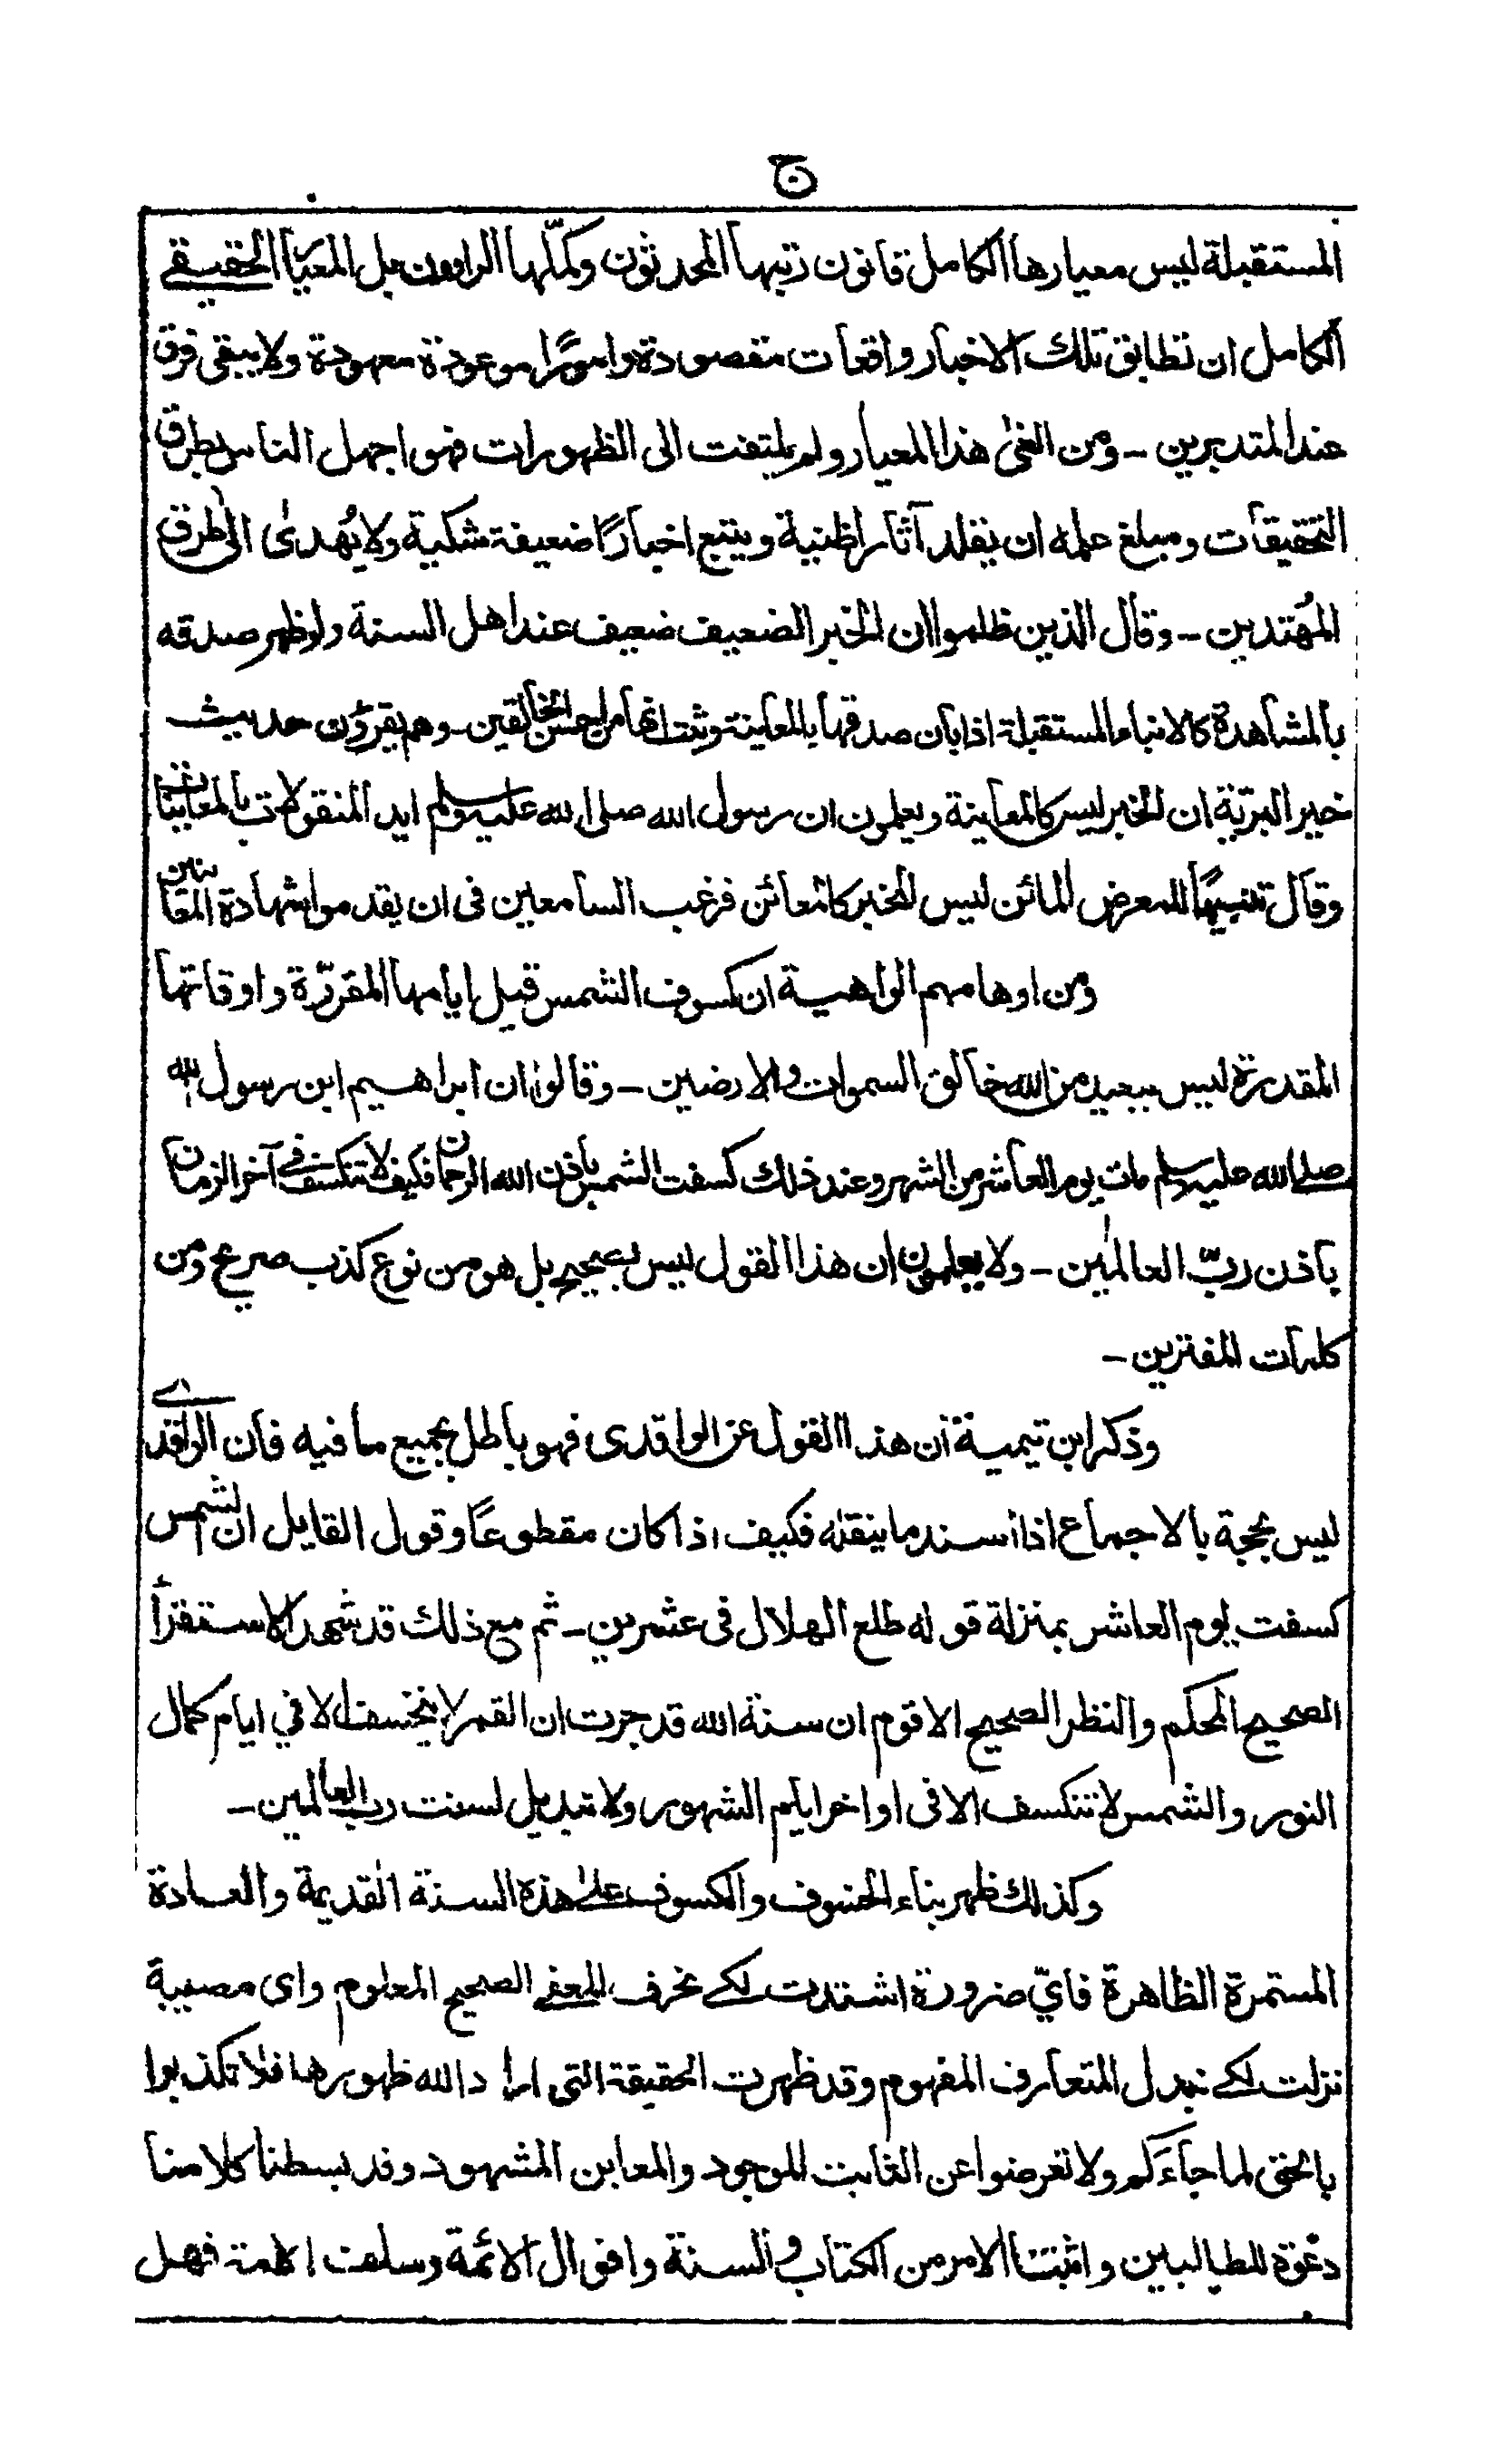 ج
المستقبلة ليس معيارها الكامل قانون رتبها المحدثون وكمّلها الراوون بل المعيار الحقيقے
الكامل ان تطابق تلك الاخبار واقعات مقصودة وامورًا موعودة معهودة ولا يبقى فرق
عند المتدبرين - ومن الغىٰ هذا المعيار ولم يلتفت الى الظهورات فهو اجهل الناس بطرق
التحقيقات ومبلغ علمه ان يقلد آثارا ظنية ويتبع اخبارًا ضعيفة شكية ولا يُهدىٰ الىٰ طرق
المُهتدين - وقال الذين ظلموا ان الخبر الضعيف ضعيف عند اهل السنة ولو ظهر صدقه
بالمشاهدة كالانباء المستقبلة اذا بان صدقها بالمعاينة وثبت انها من احسن الخالقين - وهم يقرؤن حديث
خير البريّة ان الخبر ليس كالمعاينة ويعلمون ان رسول الله صلى الله عليه وسلم ايد المنقولات بالمعاينات
وقال تنبيهًا للمعرض المائن ليس الخبر كالمعائن فرغب السامعين فى ان يقدموا شهادة المعاينين
ومن اوهامهم الواهية ان كسوف الشمس قبل ايامها المقررّة واوقاتها
المقدرة ليس ببعيد من الله خالق السموات والارضين - وقالوا ان ابراهيم ابن رسول الله
صلے الله عليه وسلم مات يوم العاشر من الشهر وعند ذلك كسفت الشمس باذن الله الرحمان فكيف لا تنكسف فے آخر الزمان
باذن ربّ العالمين - ولا يعلمون ان هذا القول ليس بصحيح بل هو من نوع كذب صريح ومن
كلمات المفترين -
وذكر ابن تيمية ان هذا القول عن الواقدى فهو باطل بجميع ما فيه فان الواقدے
ليس بحجة بالاجماع اذا اسند ما ينقله فكيف اذا كان مقطوعًا وقول القايل ان الشمس
كسفت يوم العاشر بمنزلة قوله طلع الهلال فى عشرين - ثم مع ذلك قد شهد الاستقرأ
الصحيح المحكم والنظر الصحيح الاقوم ان سنة الله قد جرت ان القمر لا ينخسف الا في ايام كمال
النور والشمس لا تنكسف الا فى اواخر ايام الشهور ولا تبديل لسنت رب العالمين -
وكذلك ظهر بناء الخسوف والكسوف علےٰ هذه السنة القديمة والعادة
المستمرة الظاهرة فايّ ضرورة اشتدت لكے نحرف المعنے الصحيح المعلوم واى مصيبة
نزلت لكے نبدل المتعارف المفهوم وقد ظهرت الحقيقة التى اراد الله ظهورها فلا تكذبوا
بالحق لما جاءكم ولا تعرضوا عن الثابت الموجود والمعاين المشهود وقد بسطنا كلامنا
دعوة للطالبين واثبتنا الامر من الكتاب والسنة واقوال الائمة وسلف الامة فهل